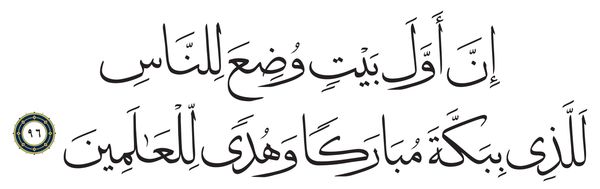 إِنَّ أَوَّلَ بَيْتٍ وُضِعَ لِلنَّاسِ
لَلَّذِي بِبَكَّةَ مُبَارَكًا وَهُدًى لِّلْعَالَمِينَ ٩٦